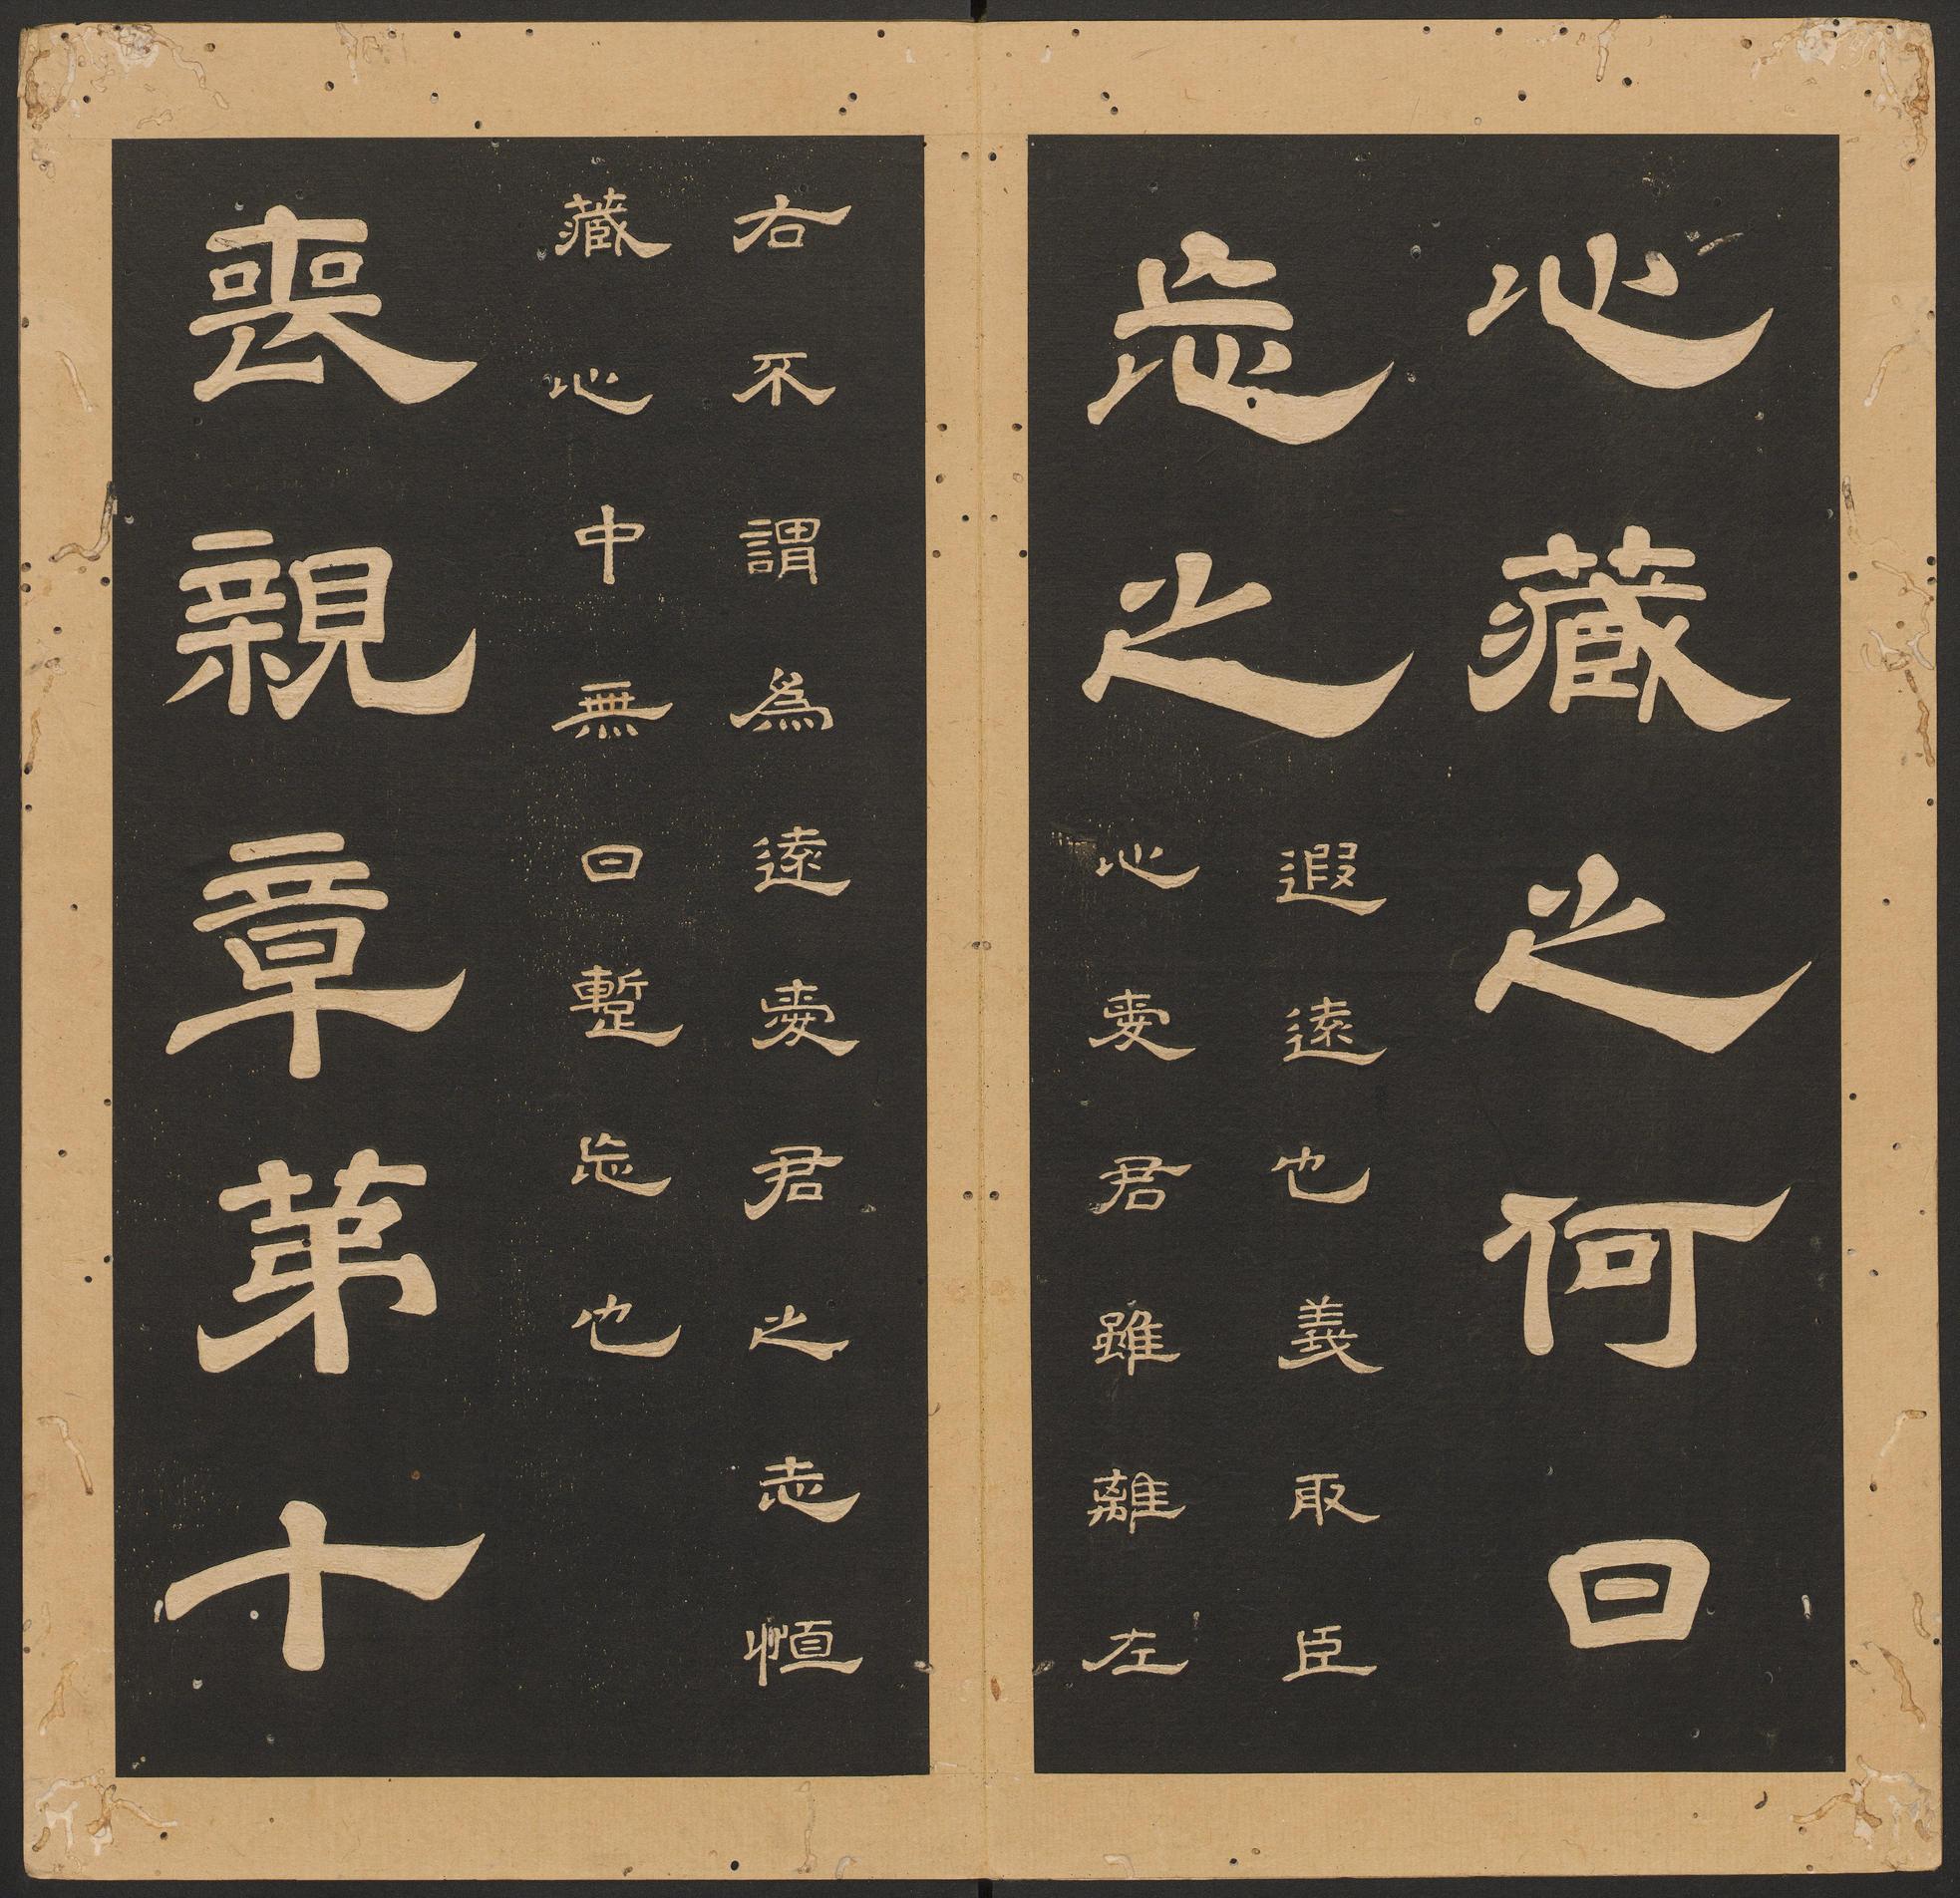 心藏之何日
忘之
遐遠也義取臣
心愛君雖離左
右不謂爲遠愛君之志恒
藏心中無日蹔忘也
喪親章第十